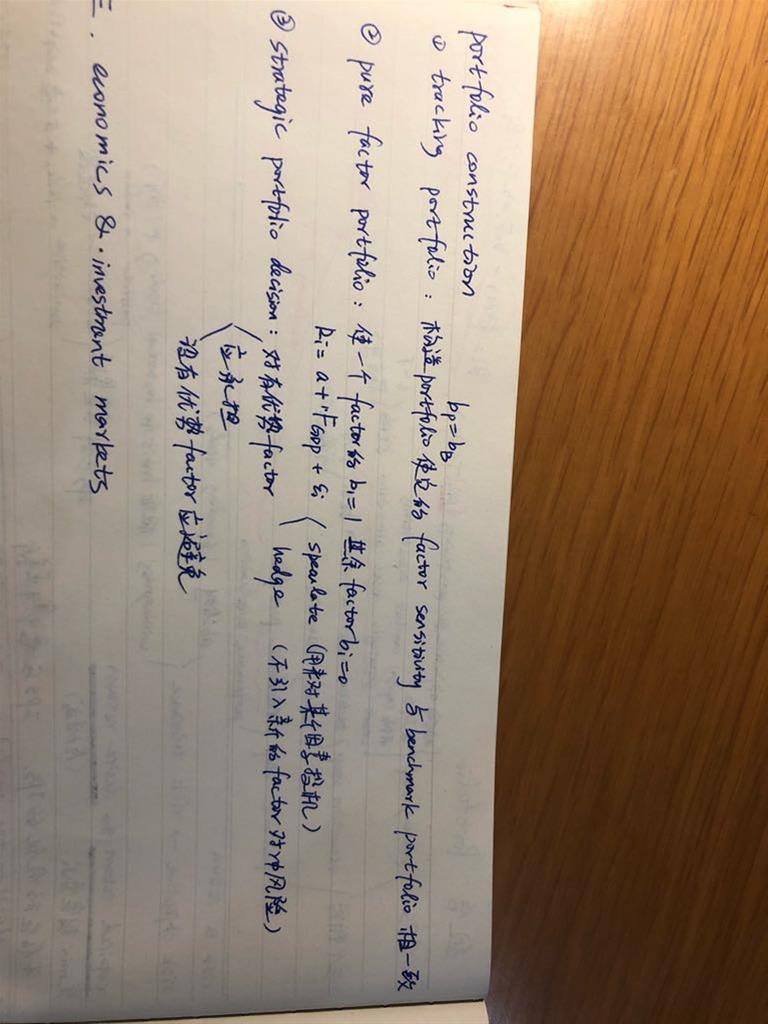 portfolio construction
① tracking portfolio : 构造portfolio使它的 factor sensitivity 与 benchmark portfolio 相一致
bp=bB
② pure factor portfolio : 使一个 factor的 bi=1 其余 factor bi=0
Ri = a + 1·FGDP + εi
speculate (用来对某个因素投机)
hedge (不引入新的factor对冲风险)
③ strategic portfolio decision : 对有优势factor
应承担
没有优势factor应避免
三. economics & investment markets